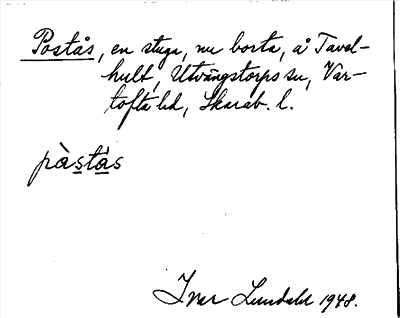 Postås, en stuga, nu borta, å Tavel-
hult, Utvängstorps sn, Var-
tofta hd, Skarab. l.
pàstås
Ivar Lundahl 1948.